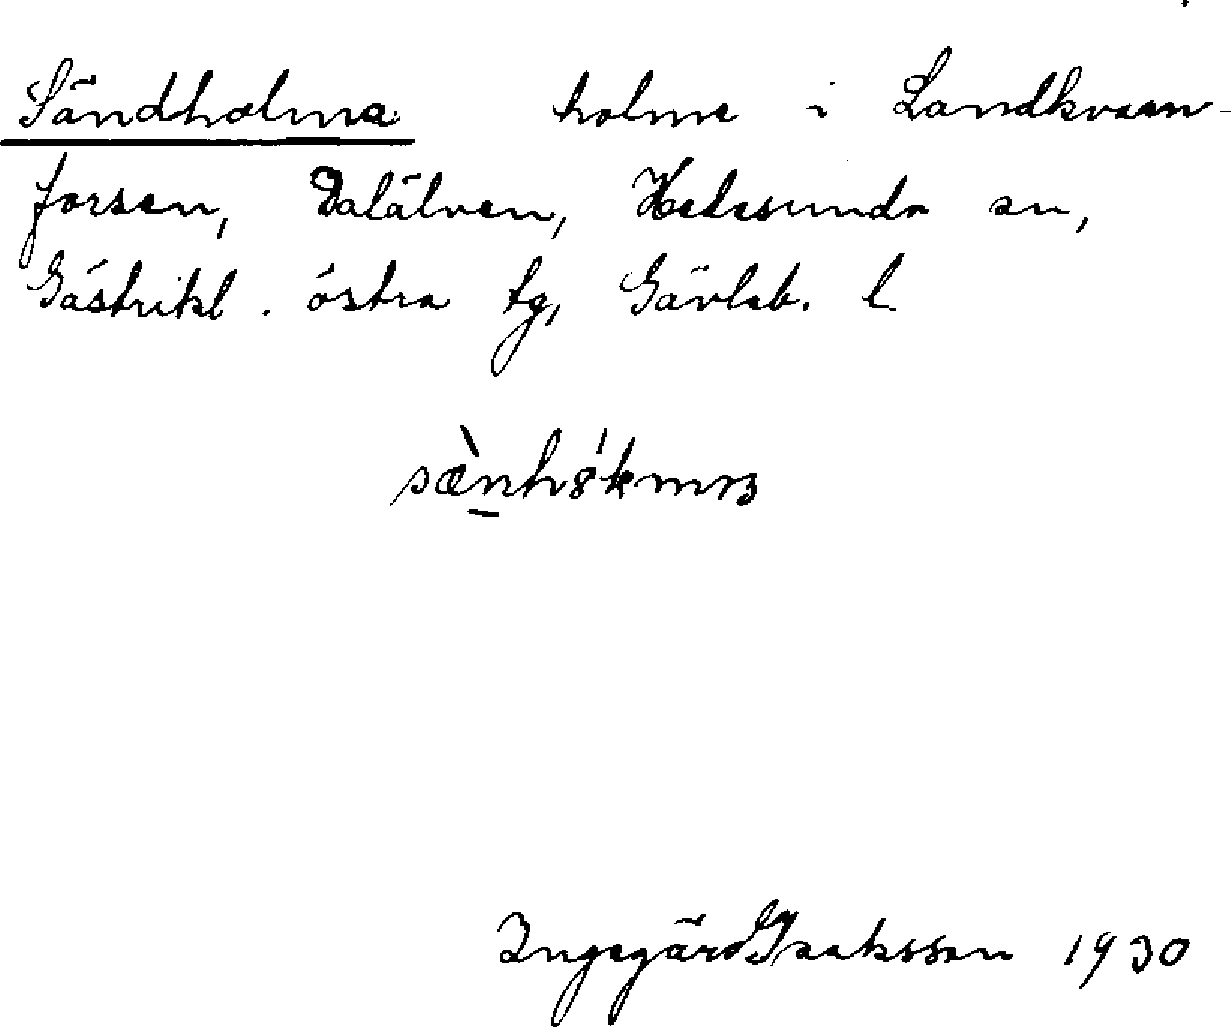 Sändholme holme i Landkvarn-
forsen, Dalälven, Hedesunda sn,
Gästrikl. östra tg, Gävleb. l.
Ingegärd Isaksson 1930